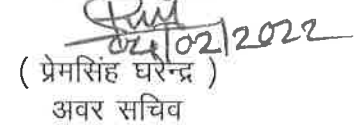 02/2022
( प्रेमसिंह घरेन्द्र )
अवर सचिव